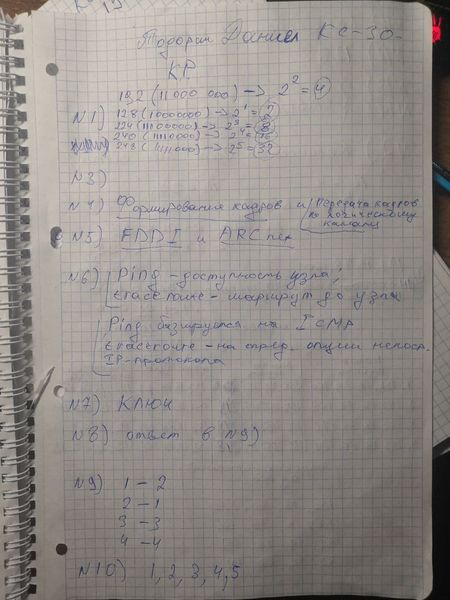 КС-30-
КР.
192 (11000 000) -> 2² = 4
N1) 128 (1000000) -> 2¹ = 2
224 (11100000) -> 2³ = 8
240 (1110000) -> 2⁴ = 16
248 (1111000) -> 2⁵ = 32
N3)
N4) Формирование кадров и Передача кадров
по логическому
каналу
N5) FDDI и ARC
N6) Ping - доступность узла;
traceroute - маршрут до узла
Ping базируется на ICMP
traceroute - на опред. опции
IP-протокола
N7) Ключ
N8) ответ в N9)
N9) 1 - 2
2 - 1
3 - 3
4 - 4
N10) 1, 2, 3, 4, 5